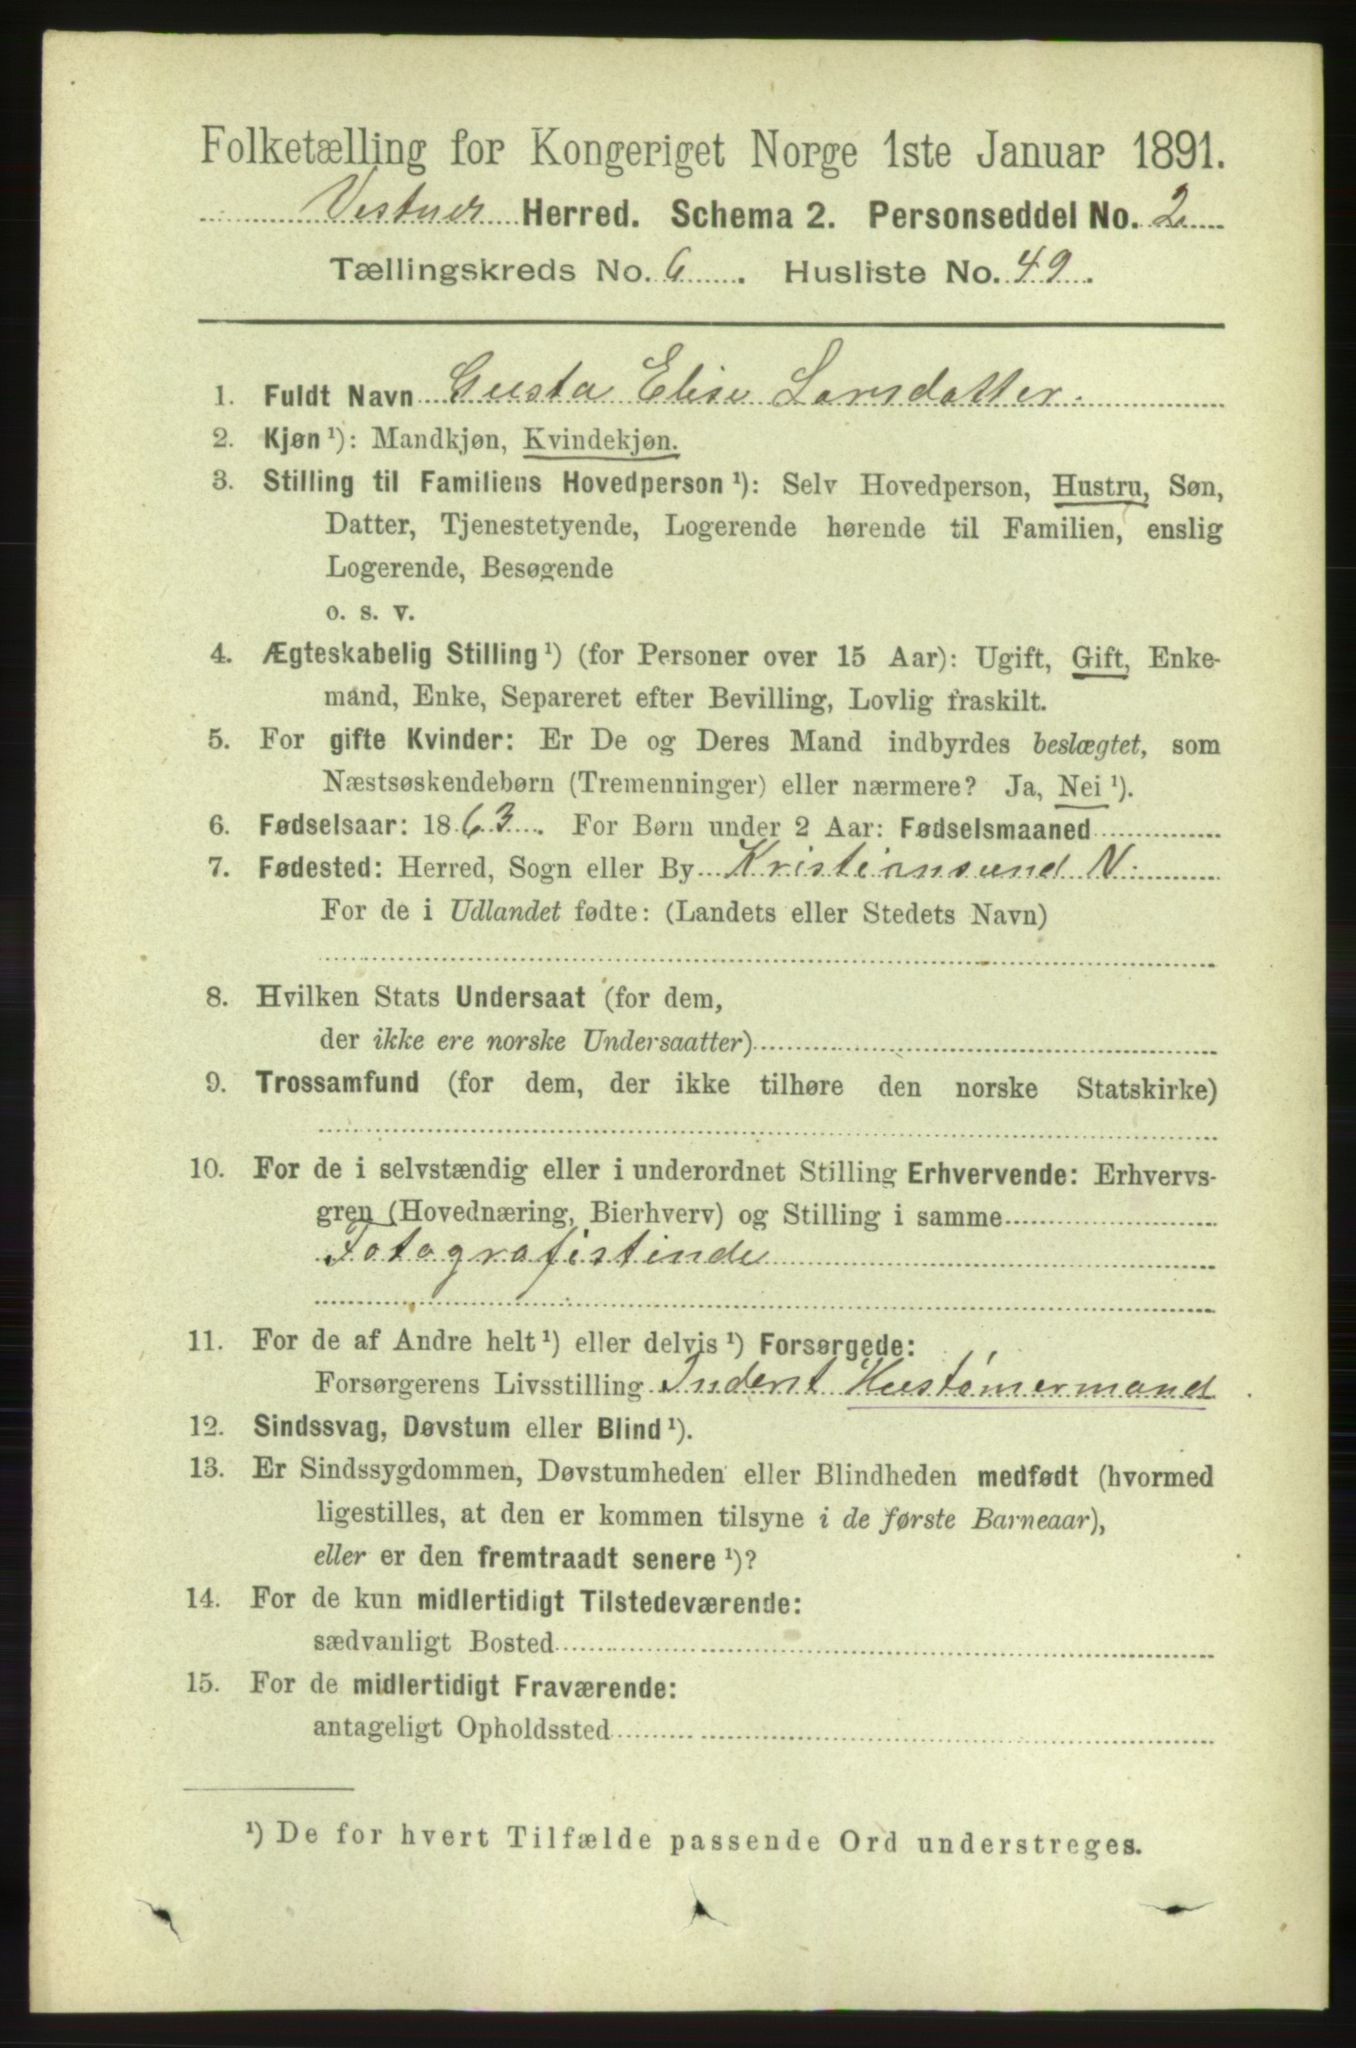 Folketælling for Kongeriget Norge 1ste Januar 1891.
Vestnes Herred. Schema 2. Personseddel No. 2
Tællingskreds No. 6. Husliste No. 49.
1. Fuldt Navn Gusta Elise Larsdatter.
2. Kjøn ¹): Mandkjøn, Kvindekjøn.
3. Stilling til Familiens Hovedperson ¹): Selv Hovedperson, Hustru, Søn,
Datter, Tjenestetyende, Logerende hørende til Familien, enslig
Logerende, Besøgende
o. s. v.
4. Ægteskabelig Stilling ¹) (for Personer over 15 Aar): Ugift, Gift, Enke-
mand, Enke, Separeret efter Bevilling, Lovlig fraskilt.
5. For gifte Kvinder: Er De og Deres Mand indbyrdes beslægtet, som
Næstsøskendebørn (Tremenninger) eller nærmere? Ja, Nei ¹).
6. Fødselsaar: 1863. For Børn under 2 Aar: Fødselsmaaned
7. Fødested: Herred, Sogn eller By Kristiansund N.
For de i Udlandet fødte: (Landets eller Stedets Navn)
8. Hvilken Stats Undersaat (for dem,
der ikke ere norske Undersaatter)
9. Trossamfund (for dem, der ikke tilhøre den norske Statskirke)
10. For de i selvstændig eller i underordnet Stilling Erhvervende: Erhvervs-
gren (Hovednæring, Bierhverv) og Stilling i samme
Fotografistinde
11. For de af Andre helt ¹) eller delvis ¹) Forsørgede:
Forsørgerens Livsstilling Inderst Hustømermand
12. Sindssvag, Døvstum eller Blind ¹).
13. Er Sindssygdommen, Døvstumheden eller Blindheden medfødt (hvormed
ligestilles, at den er kommen tilsyne i de første Barneaar),
eller er den fremtraadt senere ¹)?
14. For de kun midlertidigt Tilstedeværende:
sædvanligt Bosted
15. For de midlertidigt Fraværende:
antageligt Opholdssted
¹) De for hvert Tilfælde passende Ord understreges.